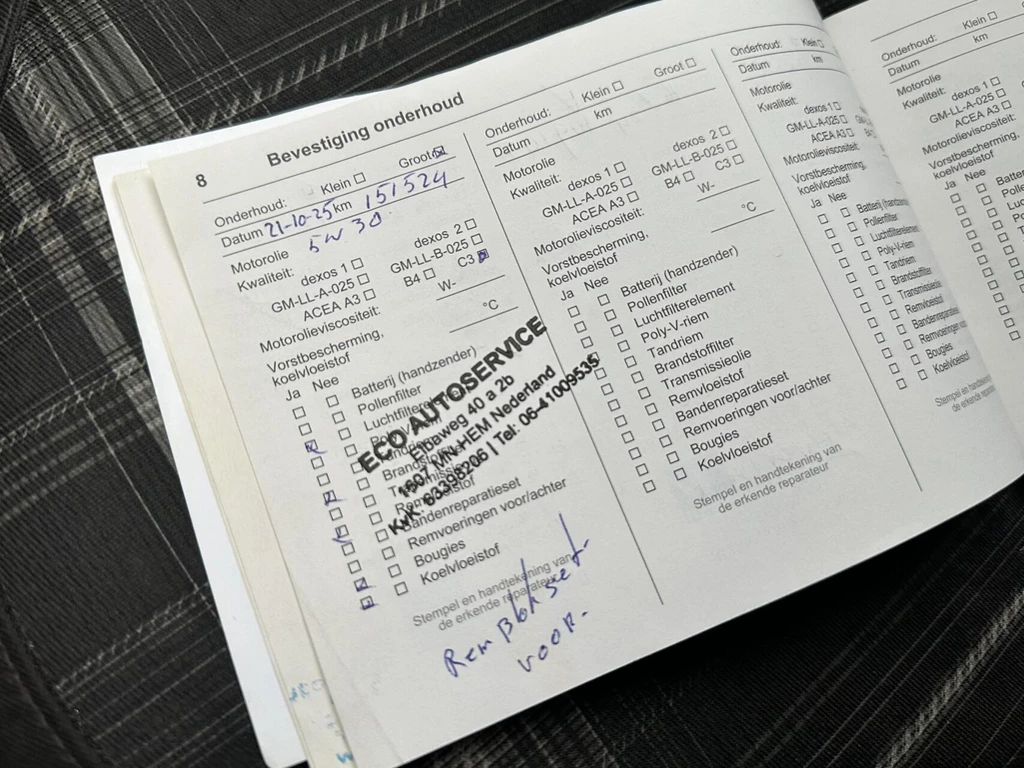 8
Bevestiging onderhoud
Onderhoud: Klein Groot
Datum 21-10-25 km 151524
Motorolie 5W 30
Kwaliteit: dexos 1 dexos 2
GM-LL-A-025 GM-LL-B-025
ACEA A3 B4 C3
Motorolieviscositeit: W-
Vorstbescherming,
koelvloeistof °C
Ja Nee
Batterij (handzender)
Pollenfilter
Luchtfilter
ECO AUTOSERVICE
Elbaweg 40 a 2b
1607 MN HEM Nederland
KvK: 63398206 | Tel: 06-41009535
Bandenreparatieset
Remvoeringen voor/achter
Bougies
Koelvloeistof
Stempel en handtekening van
de erkende reparateur
Remblokset
voor.
Onderhoud: Klein Groot
Datum km
Motorolie
Kwaliteit: dexos 1 dexos 2
GM-LL-A-025 GM-LL-B-025
ACEA A3 B4 C3
Motorolieviscositeit: W-
Vorstbescherming,
koelvloeistof °C
Ja Nee
Batterij (handzender)
Pollenfilter
Luchtfilterelement
Poly-V-riem
Tandriem
Brandstoffilter
Transmissieolie
Remvloeistof
Bandenreparatieset
Remvoeringen voor/achter
Bougies
Koelvloeistof
Stempel en handtekening van
de erkende reparateur
Onderhoud: Klein
Datum km
Motorolie
Kwaliteit:
dexos 1
GM-LL-A-025
ACEA A3
Motorolieviscositeit:
Vorstbescherming,
koelvloeistof
Ja Nee
Batterij
Pollenfilter
Luchtfilterelement
Poly-V-riem
Tandriem
Brandstoffilter
Transmissieolie
Remvloeistof
Bandenreparatieset
Remvoeringen
Bougies
Koelvloeistof
Stempel en
de erkende
Onderhoud: Klein
Datum km
Motorolie
Kwaliteit:
dexos 1
GM-LL-A-025
ACEA A3
Vorstbescherming,
koelvloeistof
Ja Nee